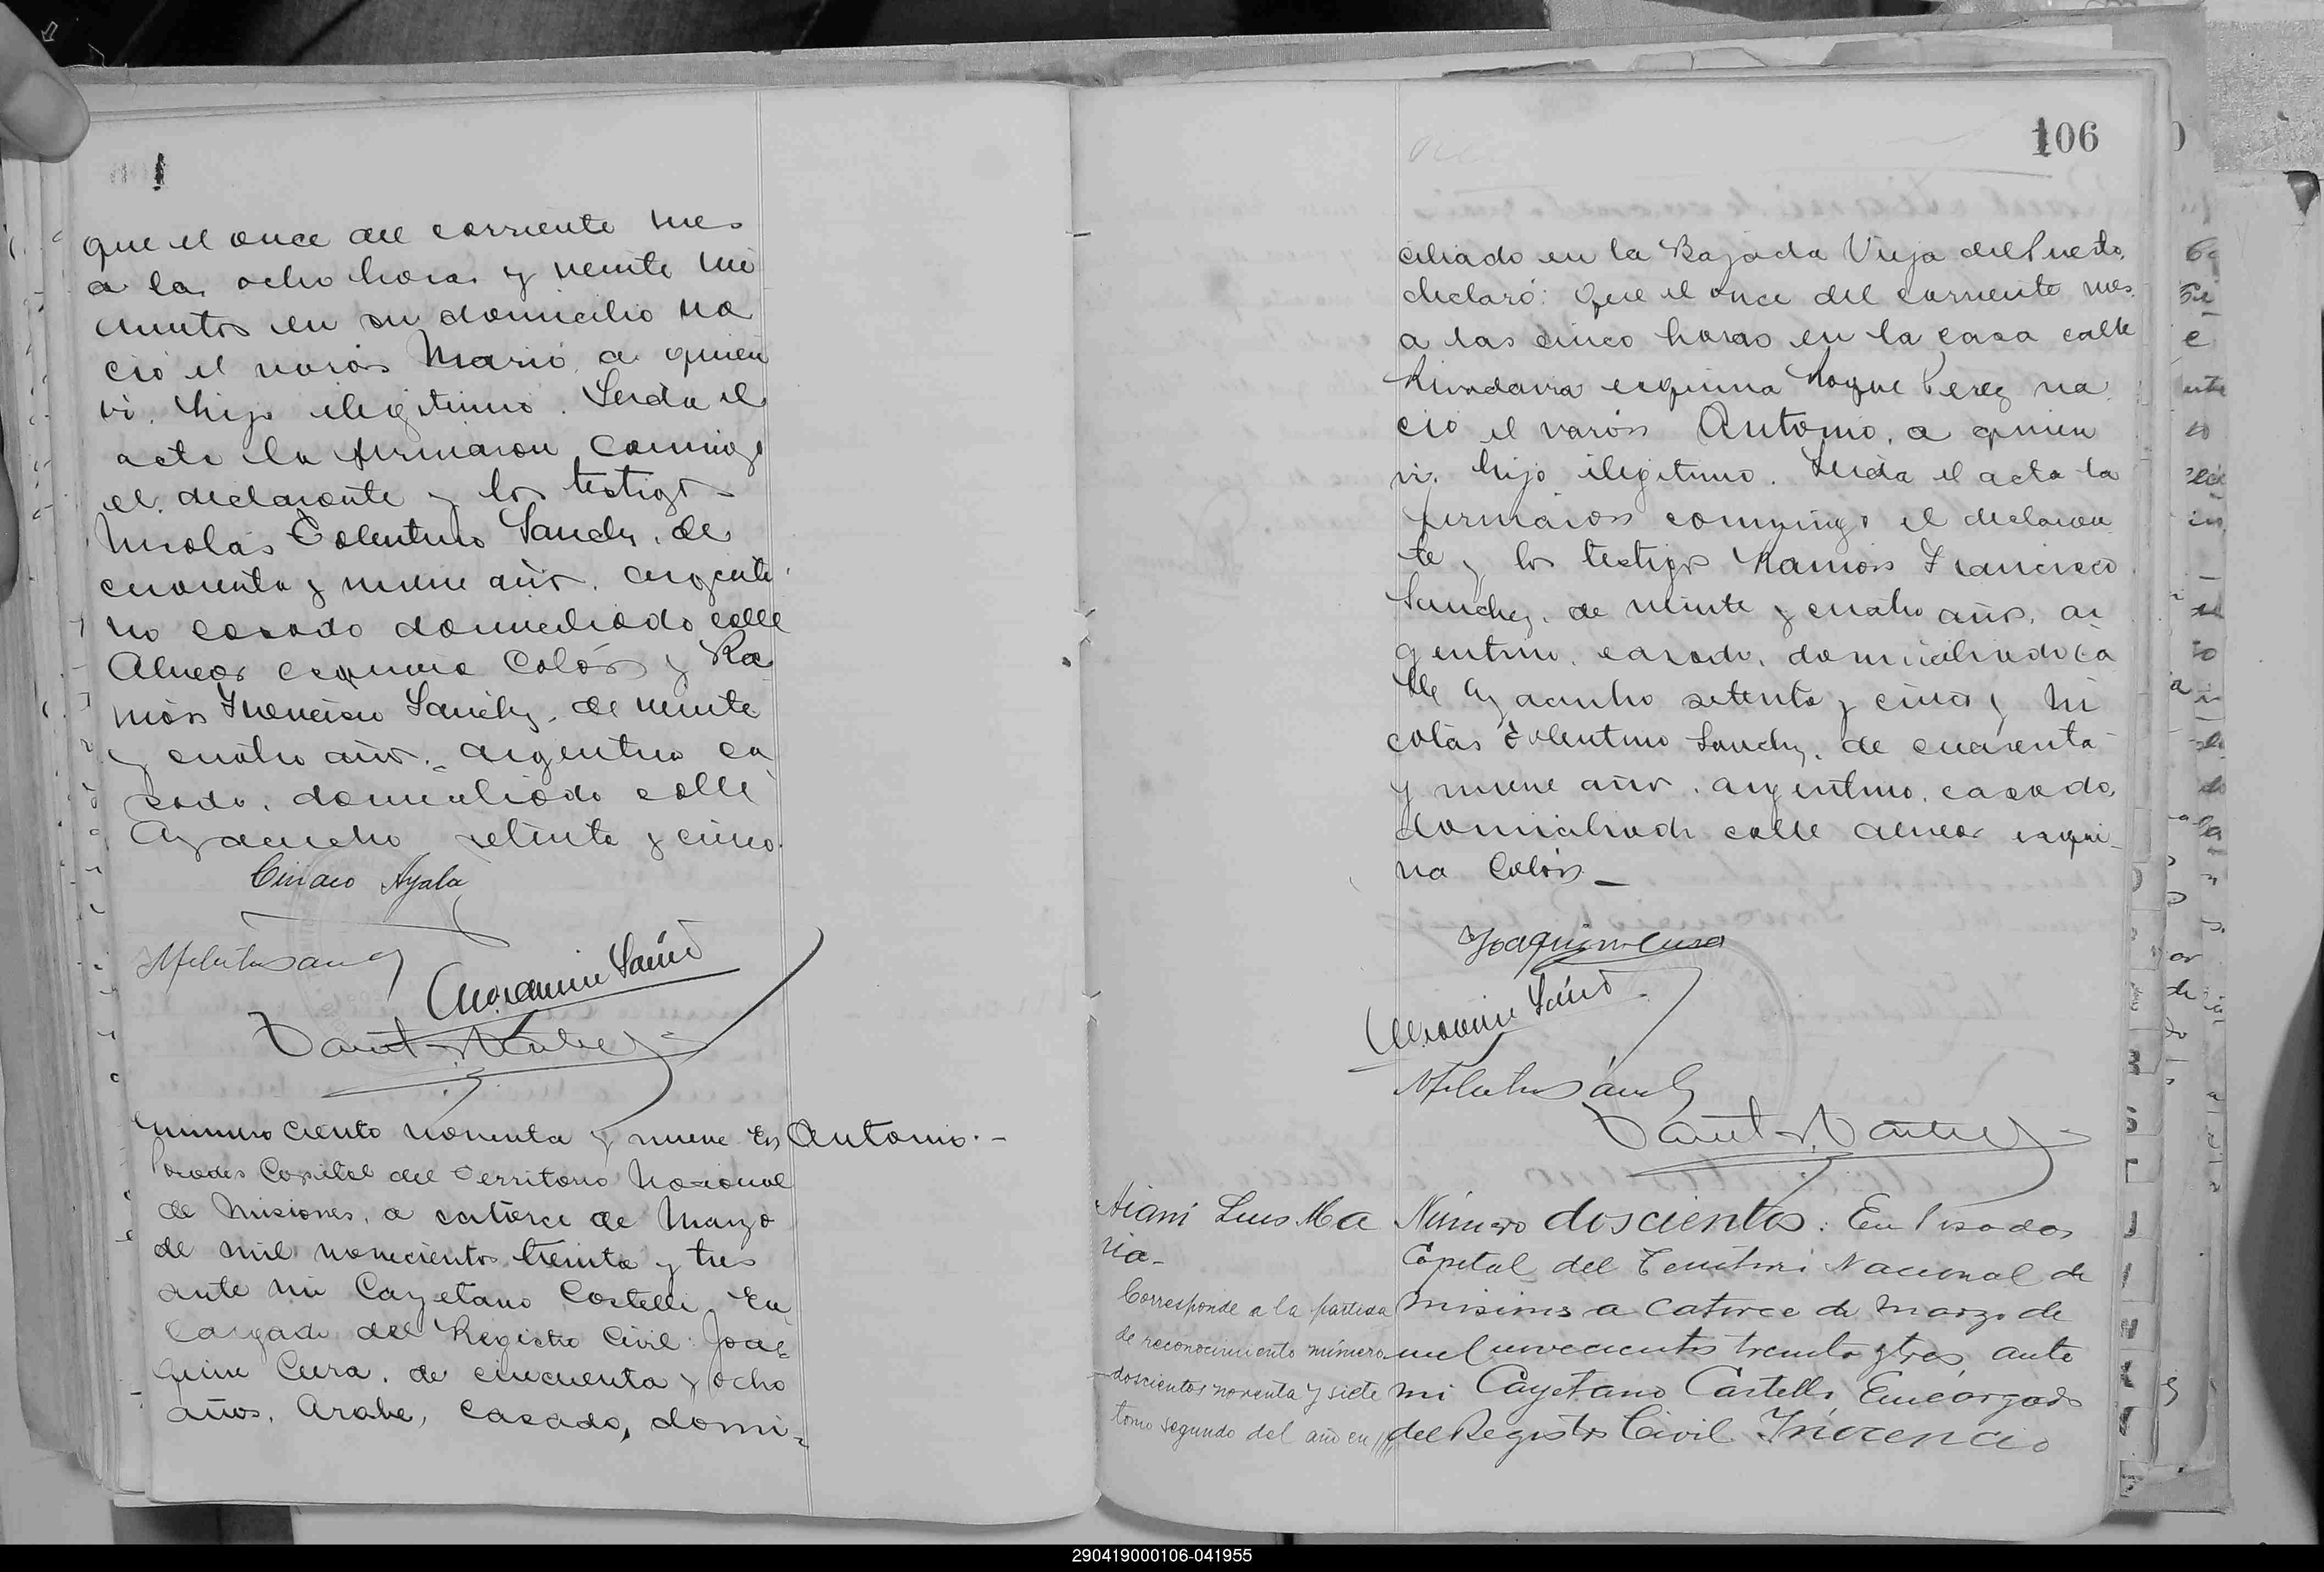 que el once del corriente mes
a las ocho horas y veinte mi
nutos en su domicilio na
ció el varón Mario, a quien
vi. hijo ilegitimo. Leida el
acta la firmaron conmigo
el declarante y los testigos
Nicolás Tolentino Sanchez, de
cuarenta y nueve años, argenti
no casado domiciliado calle
Alvear esquina Colón y Ra
món Francisco Sanchez, de veinte
y cuatro años, argentino ca
sado, domiciliado calle
Ayacucho setenta y cinco.
Ciriaco Ayala
número ciento noventa y nueve En
Antonio.-
Posadas Capital del Territorio Nacional
de Misiones, a catorce de Marzo
de mil novecientos treinta y tres
ante mi Cayetano Castelli, En
cargado del Registro Civil: Joa
quin Cura, de cincuenta y ocho
años, Arabe, casado, domi-
106
ciliado en la Bajada Vieja del Puerto,
declaró: Que el once del corriente mes
a las cinco horas en la casa calle
Rivadavia esquina Roque Perez na
ció el varón Antonio, a quien
vi. hijo ilegitimo. Leida el acta la
firmaron conmigo el declaran
te y los testigos Ramón Francisco
Sanchez, de veinte y cuatro años, ar
gentino, casado, domiciliado ca
lle Ayacucho setenta y cinco y Ni
colás Tolentino Sanchez, de cuarenta
y nueve años, argentino, casado,
domiciliado calle Alvear esqui-
na Colón.-
Joaquin Cura
Aiani Luis Ma
ria-
Corresponde a la partida
de reconocimiento número
doscientos noventa y siete
tomo segundo del año en
Número doscientos: En Posadas
Capital del Territorio Nacional de
Misiones a catorce de marzo de
mil novecientos treinta y tres, ante
mi Cayetano Castelli, Encargado
del Registro Civil Inocencio
290419000106-041955